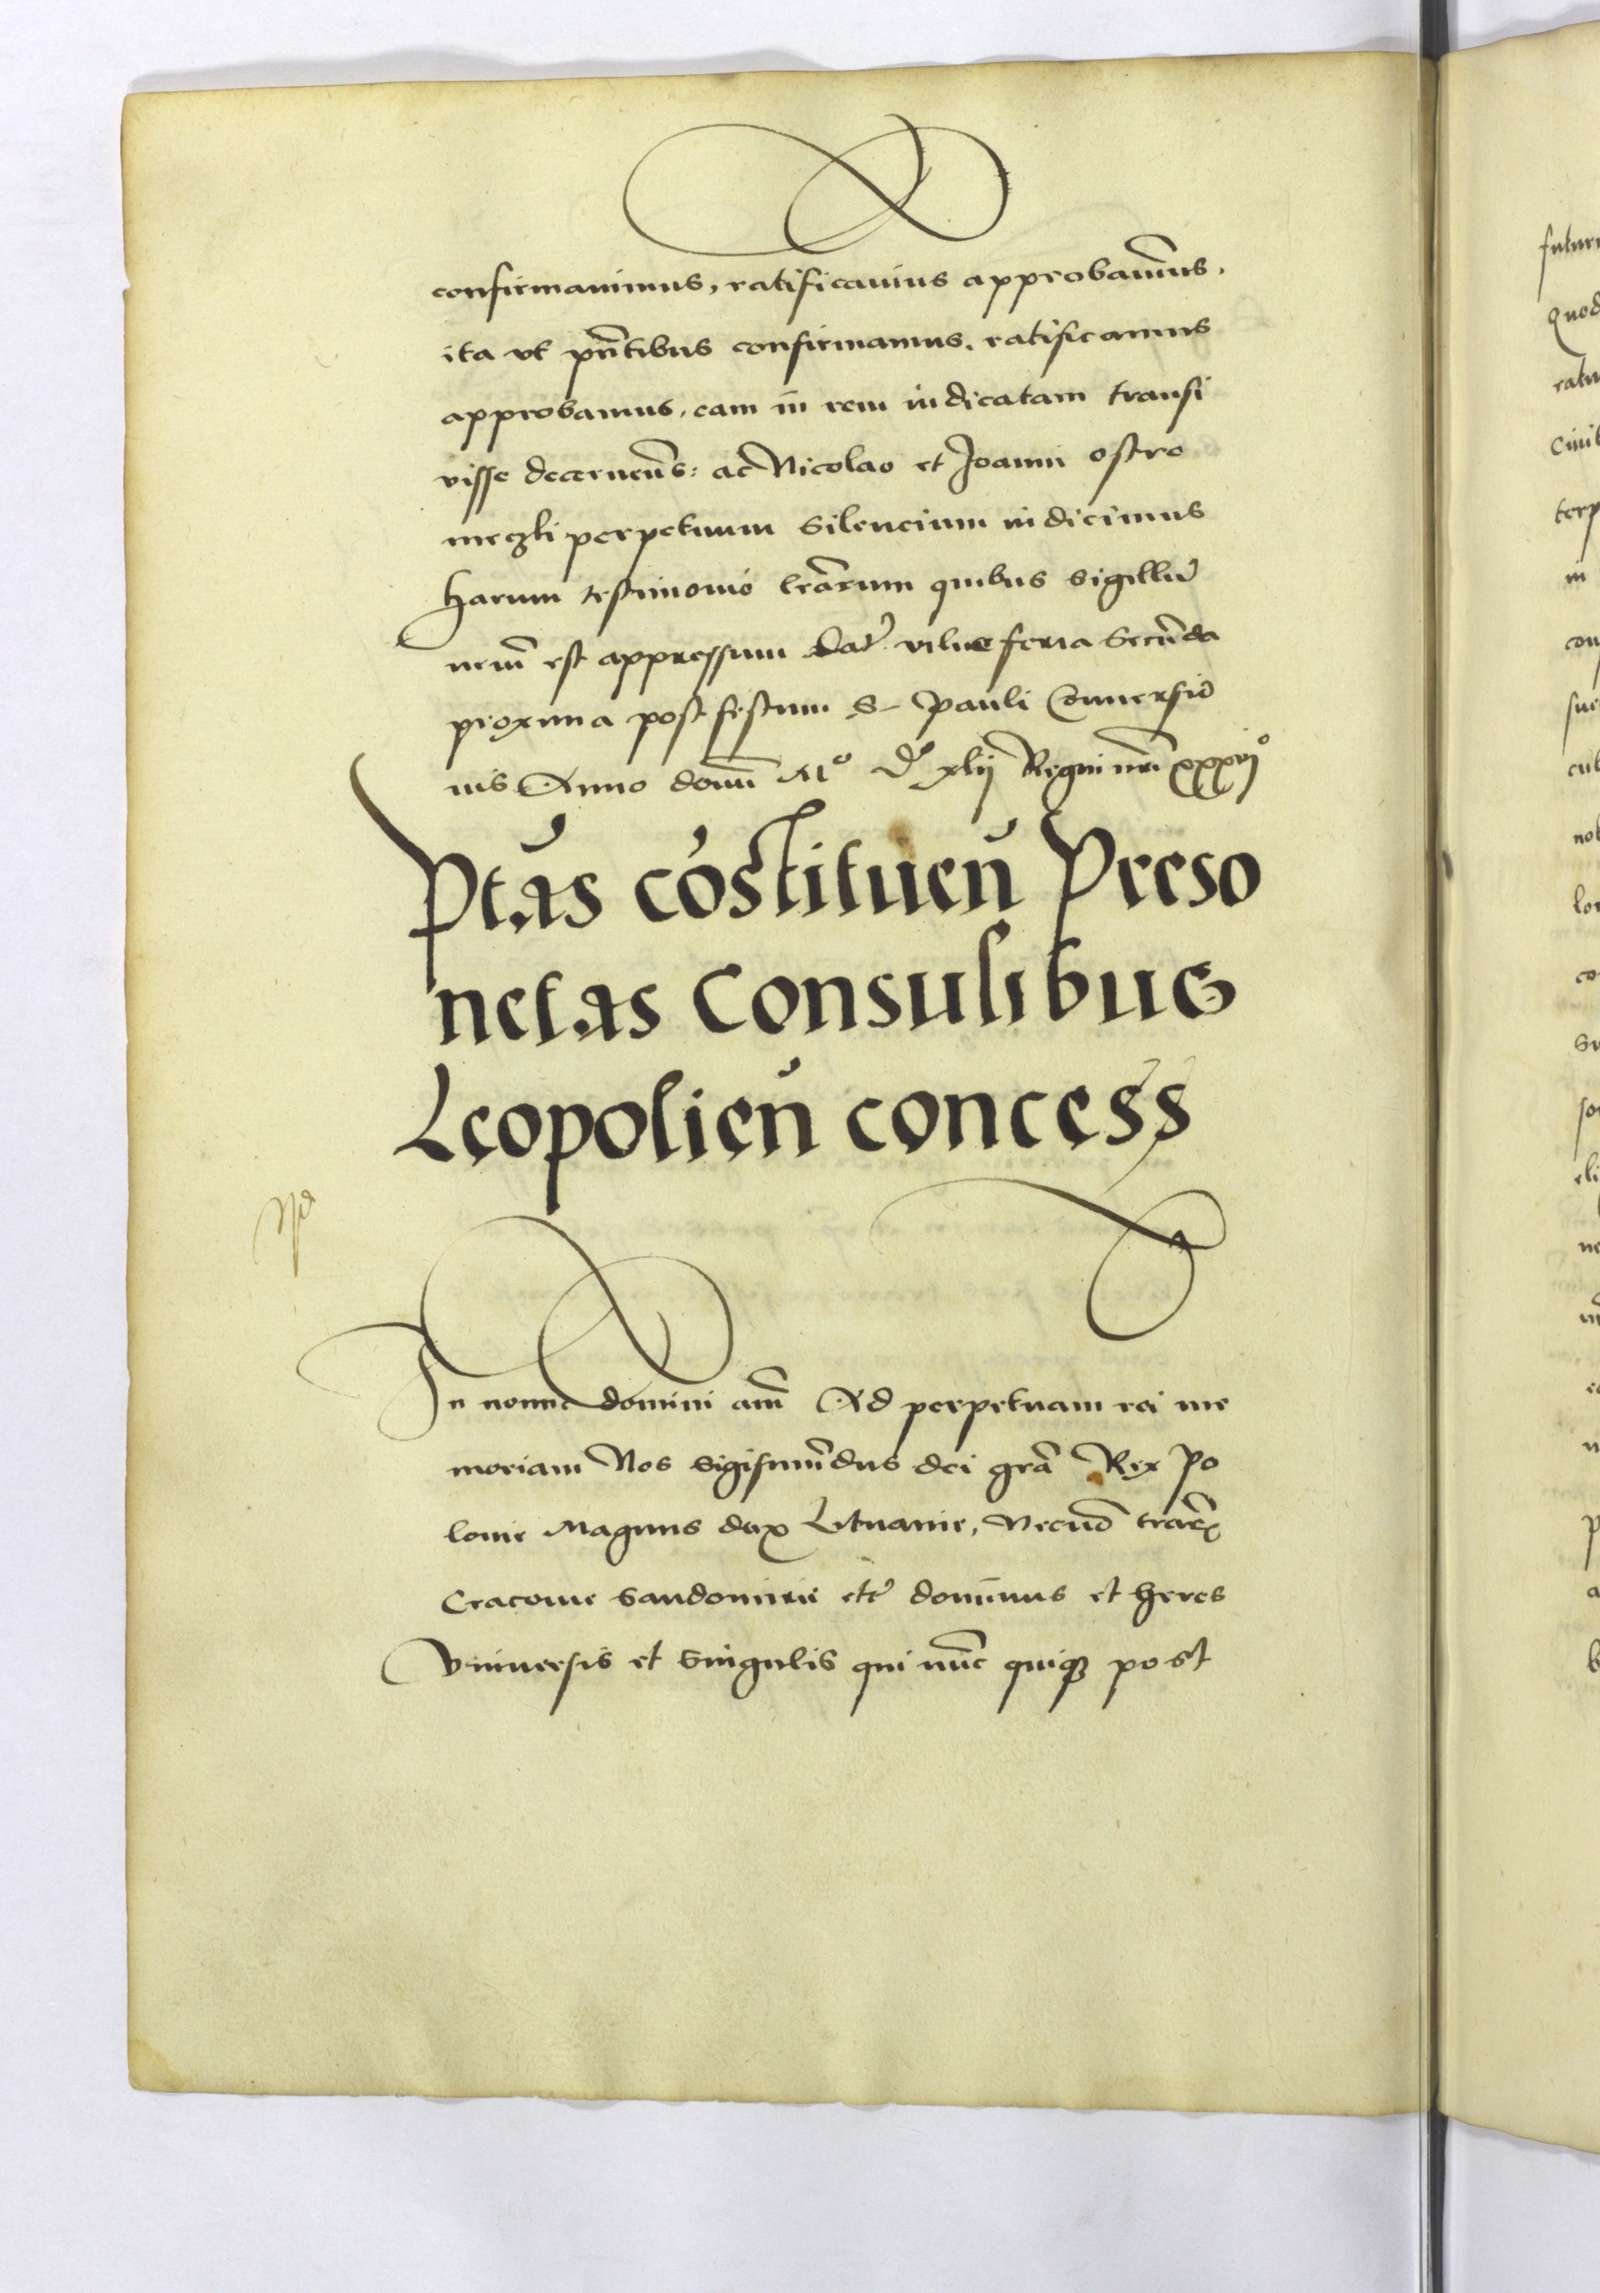 confirmauimus, ratificauius approbauim̄us.
ita vt pn̄tibus confirmamus, ratificamus
approbamus, eam in rem iudicatam transi
visse decernen̄s: ac Nicolao et Joanni ostro
meczki perpetuum silencium indicimus
Harum testimonio lr̄arum quibus sigillū
nrm̄ est appressum Dat̄ vilne feria secūda
proxima post festum S. Pauli Conuersio
nis Anno domī Mº dº xlij Regni nrī xxxvjº
Ptās cōstituen̄ Preso
netas Consulibus
Leopolien̄ concess̄
In nomine domini am̄ Ad perpetuam rei me
moriam Nos Sigismūdus dei grā Rex Po
lonie Magnus dux Lituanie, Necnō trarū
Cracouie Sandomirie etc̄ dominus et heres
Vniuersis et singulis qui nūc quiqꝫ post
futur
Quod
ratu
Ciuit
terp
in
con
sue
cul
nob
lor
co
Su
eli
ne